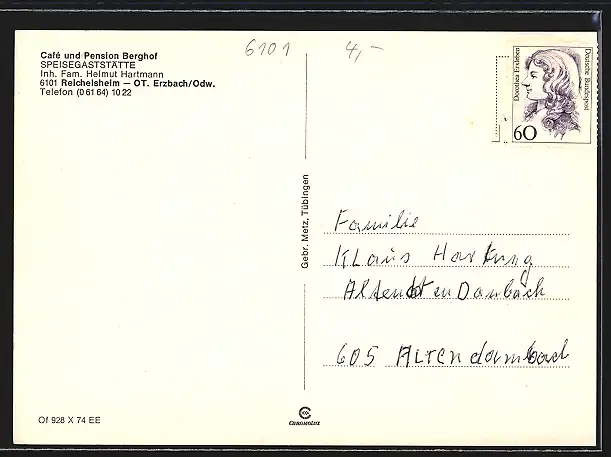 Café und Pension Berghof
SPEISEGASTSTÄTTE
Inh. Fam. Helmut Hartmann
6101 Reichelsheim — OT. Erzbach/Odw.
Telefon (0 61 64) 10 22
6101
4,-
Dorothea Erxleben
Deutsche Bundespost
60
Gebr. Metz, Tübingen
Familie
Klaus Hartung
605 Altendambach
Of 928 X 74 EE
CHROMOLUX